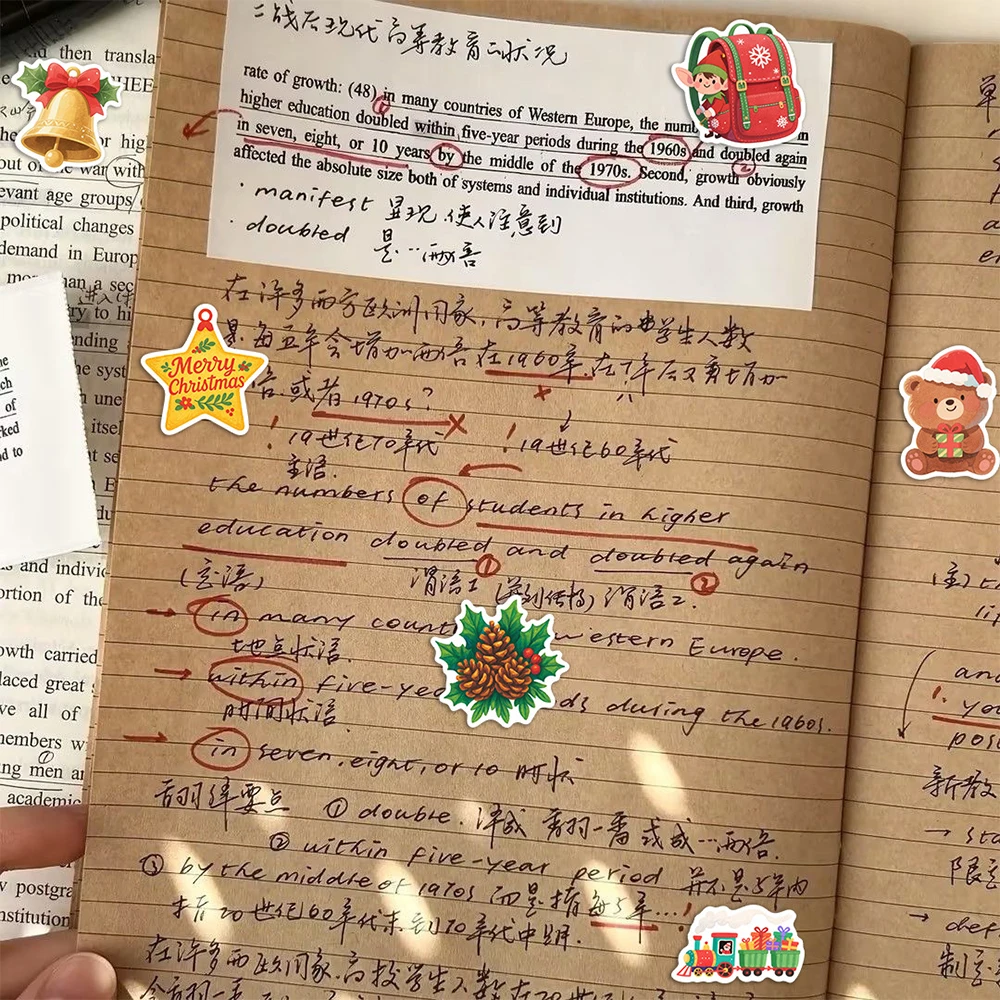 二战后现代高等教育的状况
rate of growth: (48) in many countries of Western Europe, the numb
higher education doubled within five-year periods during the 1960s and doubled again
in seven, eight, or 10 years by the middle of the 1970s. Second, growth obviously
affected the absolute size both of systems and individual institutions. And third, growth
· manifest 显现.使人注意到
· doubled 是…两倍
在许多西方欧洲国家,高等教育的学生人数
是每五年会增加两倍在1960年.在7年后又翻增加
倍.或者1970s?
! 19世纪70年代 ! 19世纪60年代
主语.
the numbers of students in higher
education doubled and doubled again
① ②
(定语) 谓语1 (并列结构) 谓语2.
in many count Western Europe.
地点状语.
within five-yea ds during the 1960s.
时间状语
in seven, eight, or 10 时状
翻译要点 ① double. 译成 翻一番 或 成…两倍.
② within five-year period 并不是5年内
而是指每5年...!
③ by the middle of 1970s
指20世纪60年代末到70年代中期.
在许多西欧国家.高校学生人数在20世纪
Merry
Christmas
nd then transla
HEE
or high
out of the war with
evant age groups
political changes
demand in Europ
more than a sec
进入
ry to hi
ending
he syst
une
itsel
ch
of
rked
nd to
s and individ
ortion of the
owth carried
laced great
ve all of
members w
①
ng men ar
academic
w postgra
nstitution
单
a
en
(主)
and
! you
posi
新教
→ sta
限定
→ def
制定